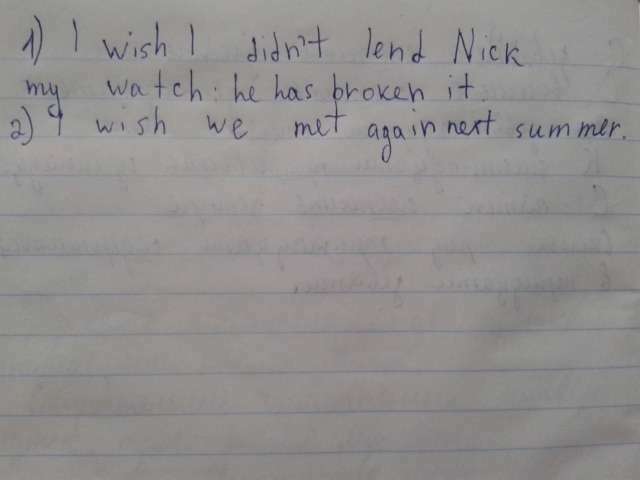 1) I wish I didn't lend Nick
my watch: he has broken it.
2) I wish we met again next summer.